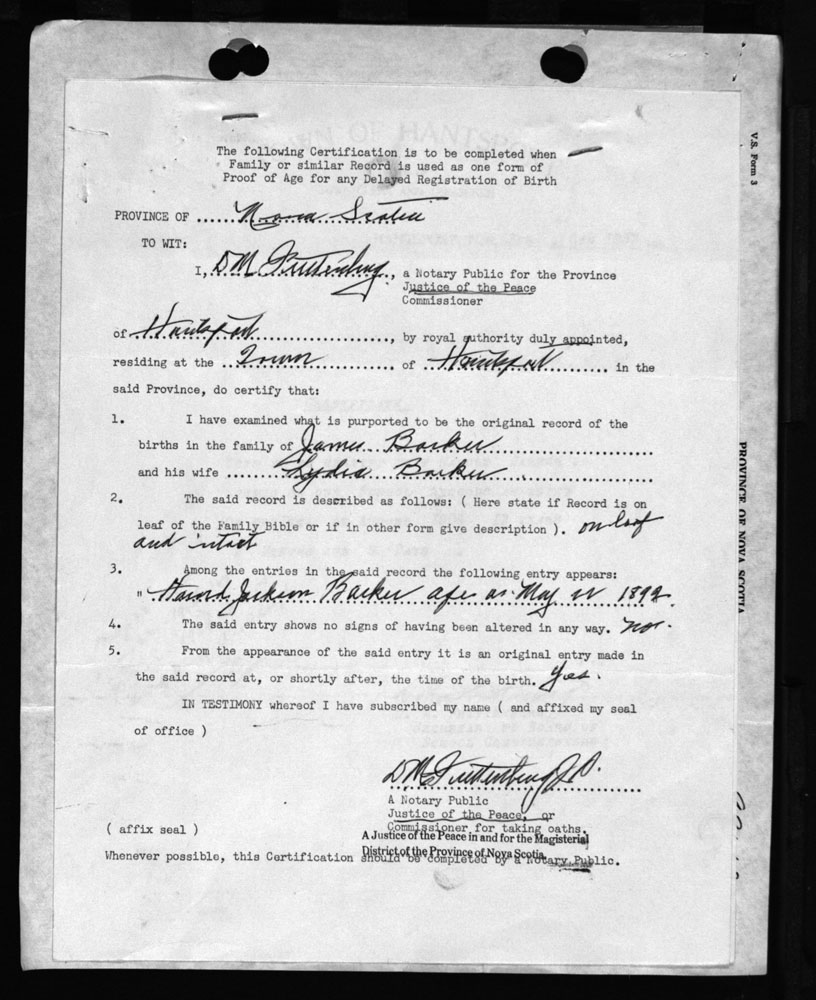 The following Certification is to be completed when
Family or similar Record is used as one form of
Proof of Age for any Delayed Registration of Birth
V.S. Form 3
PROVINCE OF ...... Nova Scotia
TO WIT:
I, D M , a Notary Public for the Province
Justice of the Peace
Commissioner
of Hantsport, by royal authority duly appointed,
residing at the .. Town of .. Hantsport in the
said Province, do certify that:
1. I have examined what is purported to be the original record of the
births in the family of James Barker
and his wife Lydia Barker
2. The said record is described as follows: ( Here state if Record is on
leaf of the Family Bible or if in other form give description ). on leaf
and intact
3. Among the entries in the said record the following entry appears:
" Jackson Barker May 1892.
4. The said entry shows no signs of having been altered in any way. no.
5. From the appearance of the said entry it is an original entry made in
the said record at, or shortly after, the time of the birth. Yes.
IN TESTIMONY whereof I have subscribed my name ( and affixed my seal
of office )
PROVINCE OF NOVA SCOTIA
D M J.P.
A Notary Public
Justice of the Peace, or
Commissioner for taking oaths.
( affix seal )
A Justice of the Peace in and for the Magisterial
District of the Province of Nova Scotia
Whenever possible, this Certification should be completed by a Notary Public.